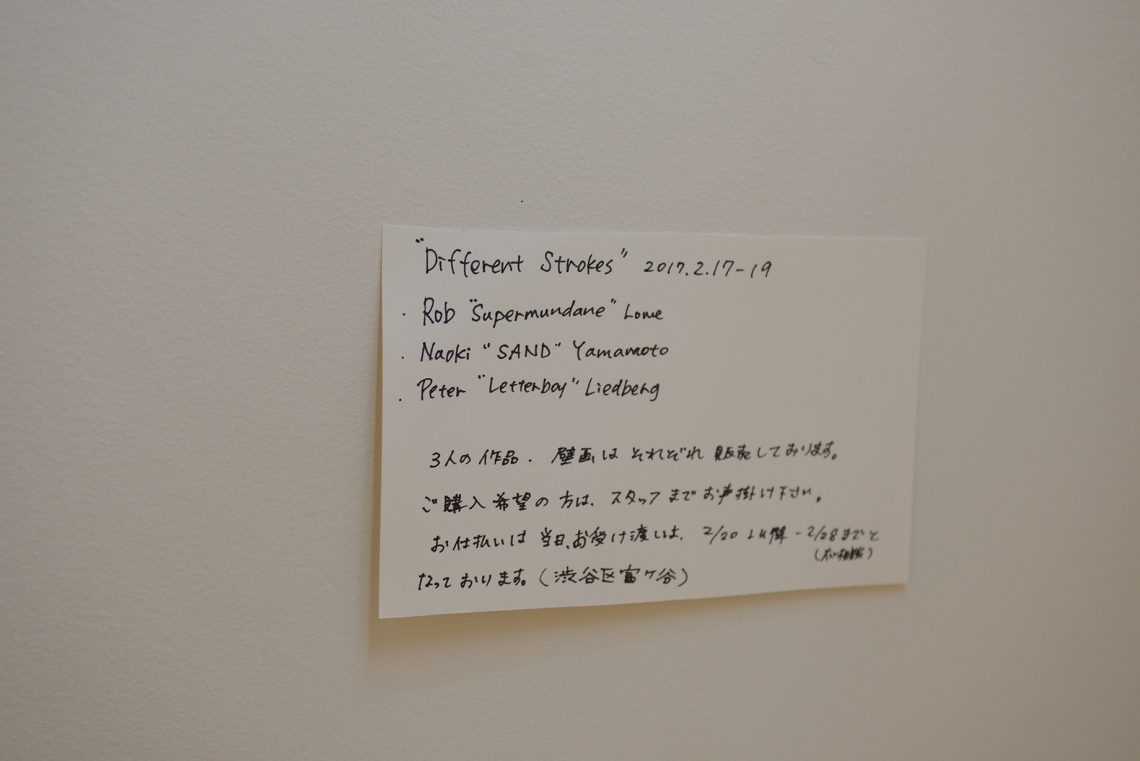 "Different Strokes" 2017.2.17-19
・Rob "Supermundane" Lowe
・Naoki "SAND" Yamamoto
・Peter "Letterboy" Liedberg
3人の作品、壁画はそれぞれ販売しております。
ご購入希望の方は、スタッフまでお声掛け下さい。
お仕払いは当日、お受け渡しは、2/20以降-2/28までと
なっております。(渋谷区富ヶ谷)